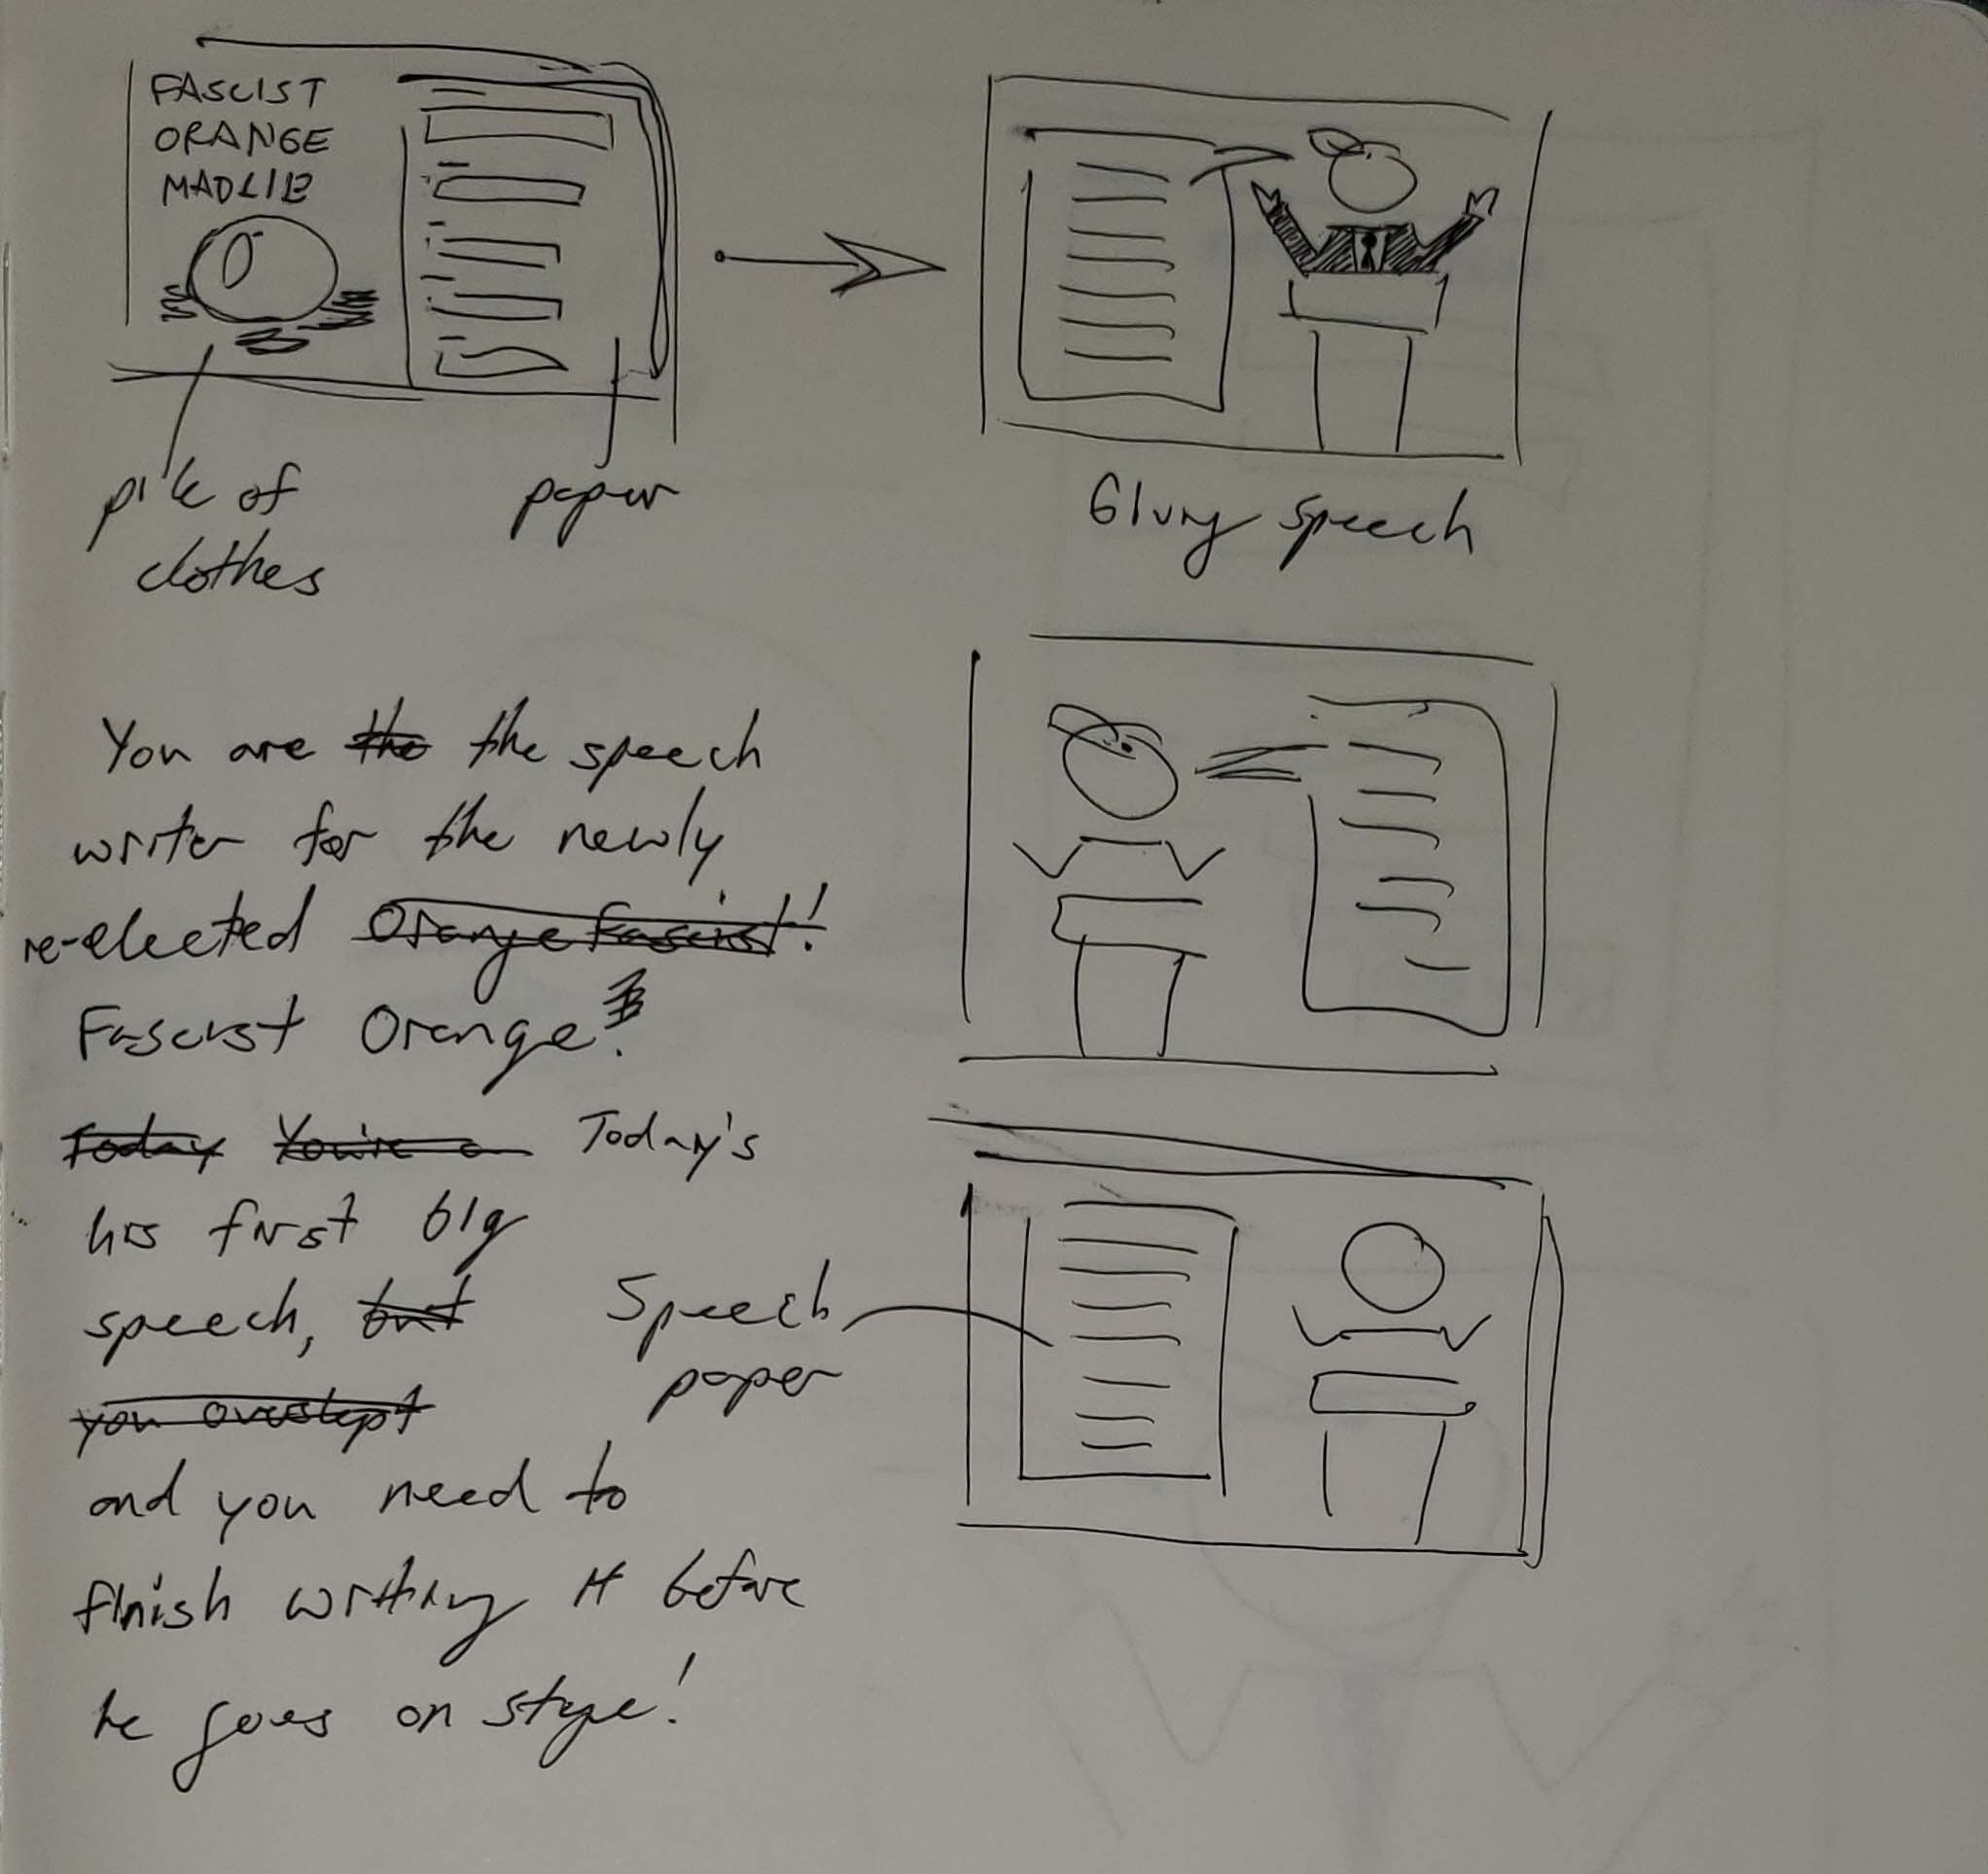 FASCIST
ORANGE
MADLIB
pile of
clothes
paper
Giving speech
You are the the speech
writer for the newly
re-elected Orange Fascist!
Fascist Orange!
Today You're a Today's
his first big
speech, but
you overslept
and you need to
finish writing it before
he goes on stage!
Speech
paper